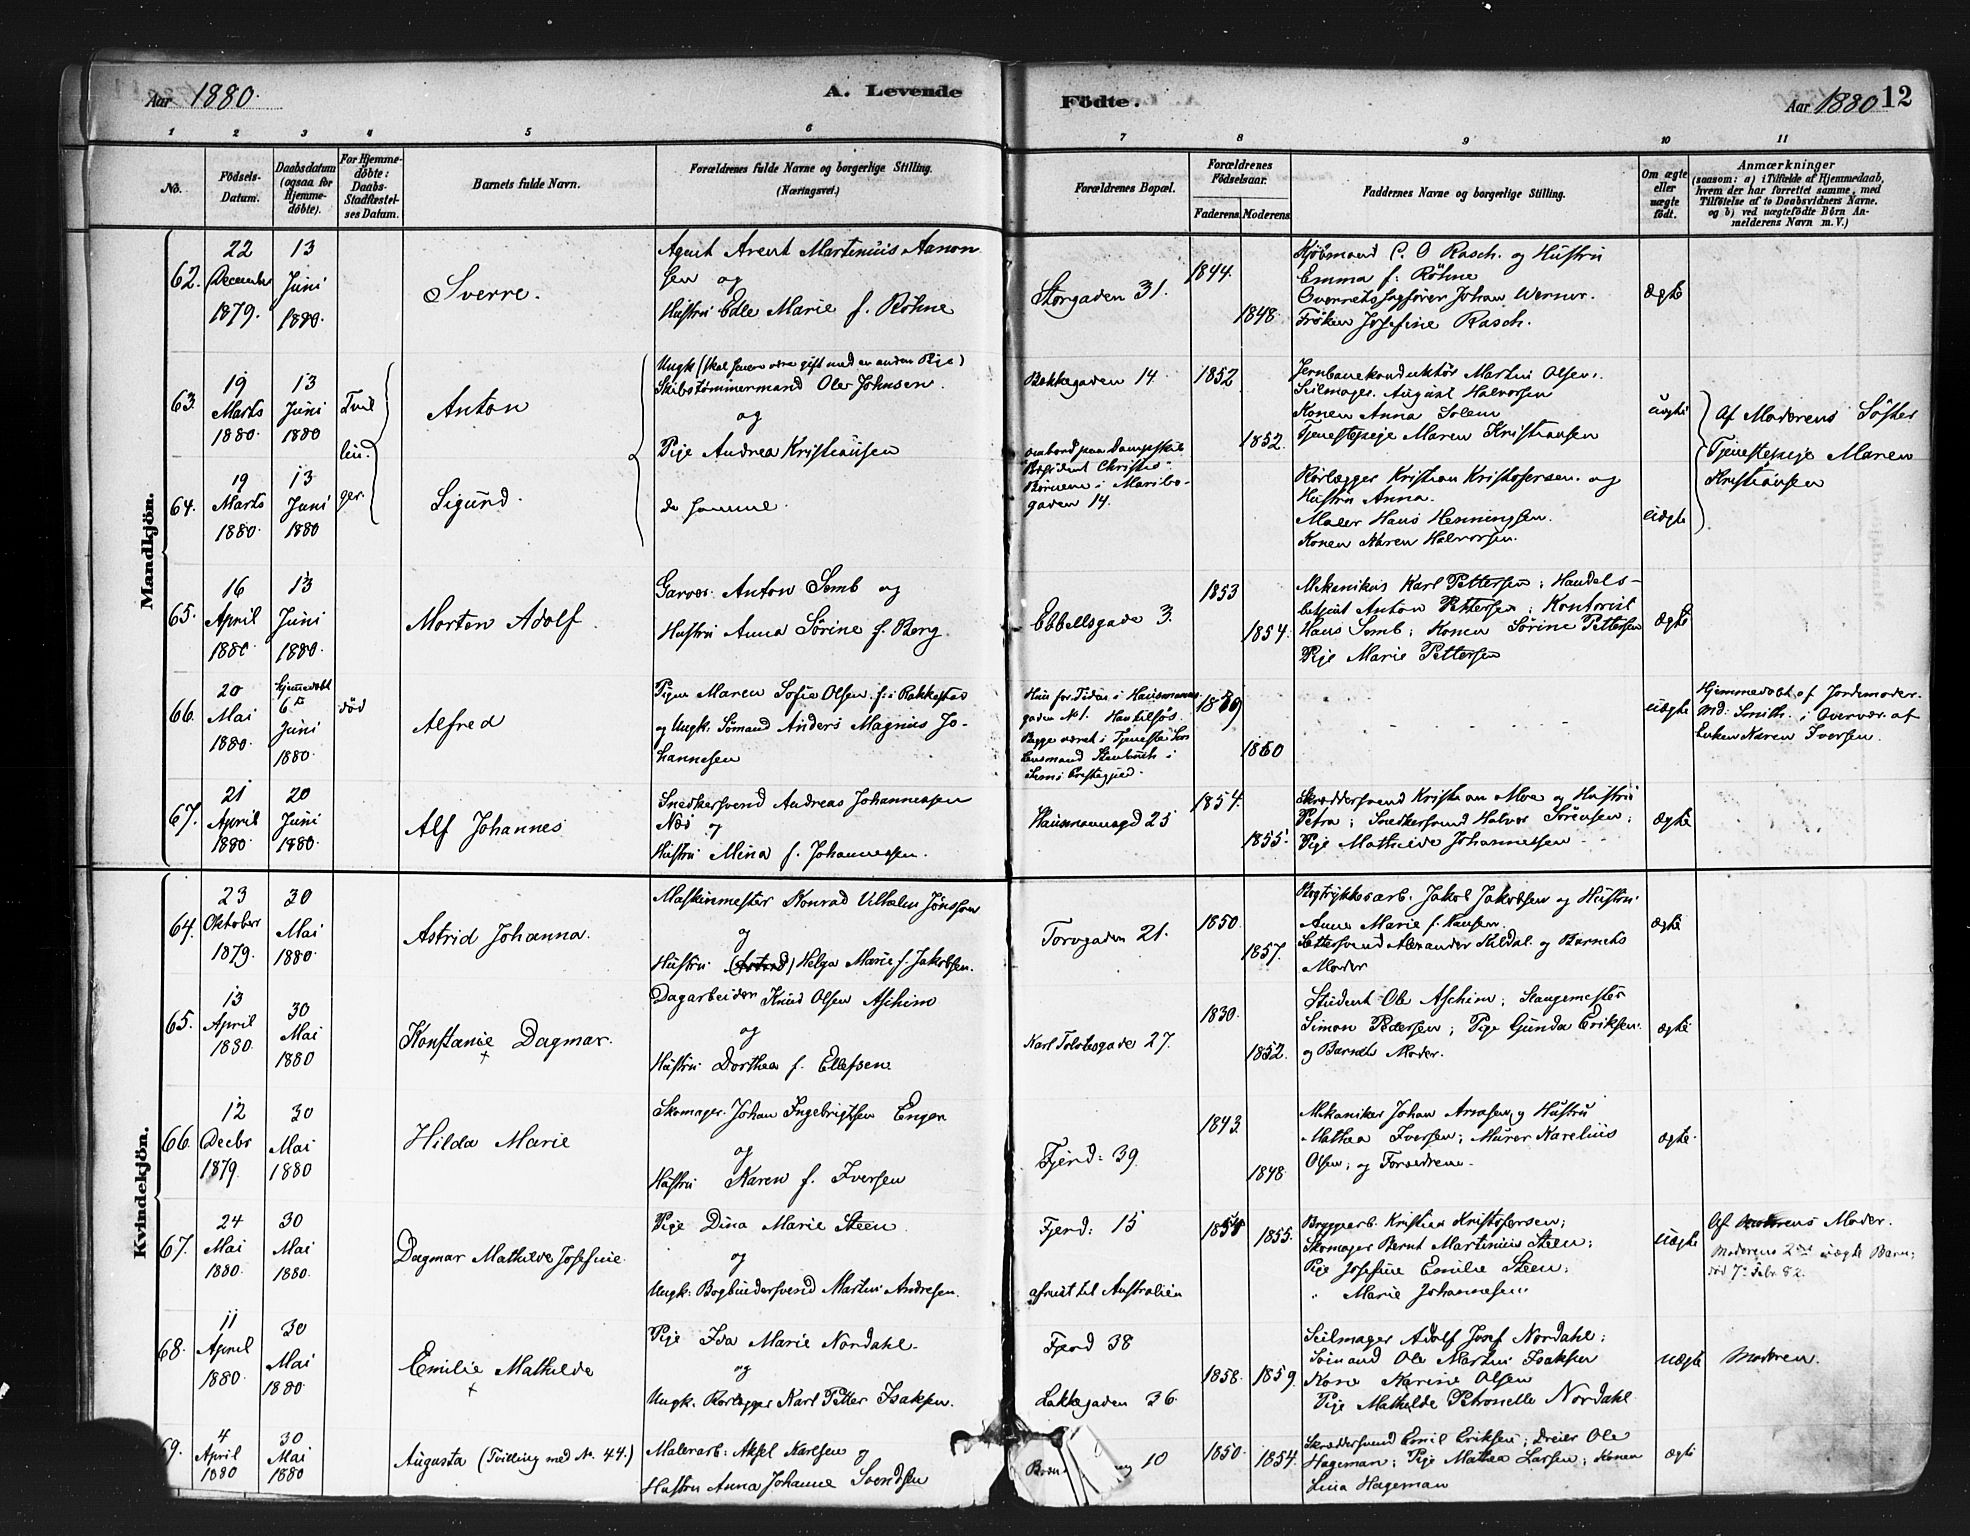 Aar 1880. A. Levende
Födte. Aar 1880 12
1 2 3 4 5 6 7 8 9 10 11
No.
Födsels-Datum.
Daabsdatum (ogsaa for Hjemme-döbte).
For Hjemme-döbte: Daabs-Stadfæstel-ses Datum.
Barnets fulde Navn.
Forældrenes fulde Navne og borgerlige Stilling. (Næringsvei.)
Forældrenes Bopæl.
Forældrenes Födselsaar.
Faderens. Moderens.
Faddernes Navne og borgerlige Stilling.
Om ægte eller uægte födt.
Anmærkninger
(saasom: a) i Tilfælde af Hjemmedaab,
hvem der har forrettet samme, med
Tilföielse af to Daabsvidners Navne.
og b) ved uægtefödte Börn An-
melderens Navn m. V.)
Mandkjön.
62.
22 December 1879.
13 Juni 1880.
Sverre.
Agent Arent Martinius Aanon
sen og
Hustru Edle Marie f. Röhne
Storgaden 31.
1844.
1848
Kjöbmand C. O Rasch. og Hustru
Emma f. Röhne
Overretssagförer Johan Werner.
Fröken Josefine Rasch.
Ægte
63.
19 Marts 1880.
13 Juni 1880
Tvil
lin.
ger.
Anton
Ungk. (skal senere være gift med en anden Pige)
Skibstömmermand Ole Johnsen.
og
Pige Andrea Kristiansen
Bakkegaden 14.
1852
1852.
Jernbanekonduktör Martin Olsen.
Seilmager August Halvorsen
Konen Anna Solem
Tjenestepige Maren Kristiansen
uægte
Af Moderens Söster
Tjenestepige Maren
Kristiansen
64.
19 Marts 1880.
13 Juni 1880
Sigurd.
de samme.
ombord paa Dampskib
"Præsident Christie"
Börnene i Maribo-
gaden 14.
Rörlægger Kristian Kristofersen. og
Hustru Anna.
Maler Hans Henningsen.
Konen Karen Halvorsen.
uægte
65.
16 April 1880
13 Juni 1880.
Morten Adolf.
Garver Anton Semb og
Hustru Anna Sörine f. Berg.
Ebbellsgade 3.
1853
1854.
Mekanikus Karl Pettersen; Handels-
betjent Anton Pettersen; Kontorist
Hans Semb; Konen Sörine Pettersen
Pige Marie Pettersen
Ægte
66.
20 Mai 1880.
Hjemmedöbt 6te Juni 1880.
död
Alfred
Pigen Maren Sofie Olsen f. i Rakkestad
og Ungk. Sömand Anders Magnus Jo-
hannesen
Hun for Tiden i Hausmanns
gaden No 1. Han tilsös.
Begge været i Tjeneste hos
Lensmand
1860
uægte
Hjemmedöbt af Jordemoder
Md: Smith. i Overvær af
Enken Karen Iversen.
67.
21 April 1880.
20 Juni 1880.
Alf Johannes
Snedkersvend Andreas Johannessen
Næs og
Hustru Mina f. Johannessen.
Hausmannsgd 25
1854.
1855.
Skræddersvend Kristian Moe og Hustru
Petra; Snedkersvend Halvor Sörensen;
Pige Mathilde Johannessen
ægte
Kvindekjön.
64.
23 Oktober 1879.
30 Mai 1880.
Astrid Johanna.
Maskinmester Konrad Vilhelm Jönsson
og
Hustru (Astrid) Helga Marie f. Jakobsen.
Torvgaden 21.
1850.
1857.
Bogtrykkerarb. Jakob Jakobsen og Hustru
Anne Marie f. Hansen.
Sættersvend Alexander Kildal. og Barnets
Moder
ægte
65.
13 April 1880.
30 Mai 1880
Konstanse Dagmar.
Dagarbeider Knud Olsen Aschim
og
Hustru Dorthea f. Ellefsen.
Karl Tolvtesgade 27.
1830.
1852.
Student Ole Aschim; Slangemester
Simon Pedersen; Pige Gunda Eriksen.
og Barnets Moder.
ægte
66.
12 Decbr 1879.
30 Mai 1880
Hilda Marie
Skomager. Johan Ingebrigtsen Enger
og
Hustru Karen f. Iversen
Fjerd: 39.
1843.
1848
Mekaniker Johan Arnesen, og Hustru
Mathea Iversen; Murer Karelius
Olsen; og Forældrene.
ægte.
67.
24 Mai 1880.
30 Mai 1880.
Dagmar Mathilde Josefine.
Pige Dina Marie Steen.
og
Ungk. Bogbindersvend Martin Andresen.
Fjerd: 15
afreist til Australien
1855.
Bryggearb. Kristian Kristofersen;
Skomager Bernt Martinius Steen;
Pige Josefine Emilie Steen;
" Marie Johannesen
uægte
Af Moderens Moder.
Moderens 2det uægte Barn;
död 7. Febr 82.
68.
11 April 1880.
30 Mai 1880.
Emilie Mathilde
Pige Ida Marie Nordahl.
og
Ungk. Rörlægger Karl Petter Isaksen.
Fjerd 38
Lakkegaden 36.
1858.
1859.
Seilmager Adolf Josef Nordahl;
Sömand Ole Martin Isaksen
Kone Karine Olsen
Pige Mathilde Petronelle Nordahl.
uægte
Moderen.
69.
4 April 1880
30 Mai 1880
Augusta (Tvilling med No. 44.)
Malerarb: Aksel Karlsen og
Hustru Anna Johanne Svendsen
10
1850.
1854.
Skræddersvend Emil Eriksen; Dreier Ole
Hageman; Pige Mathea Larsen; Konen
Lina Hageman
ægte